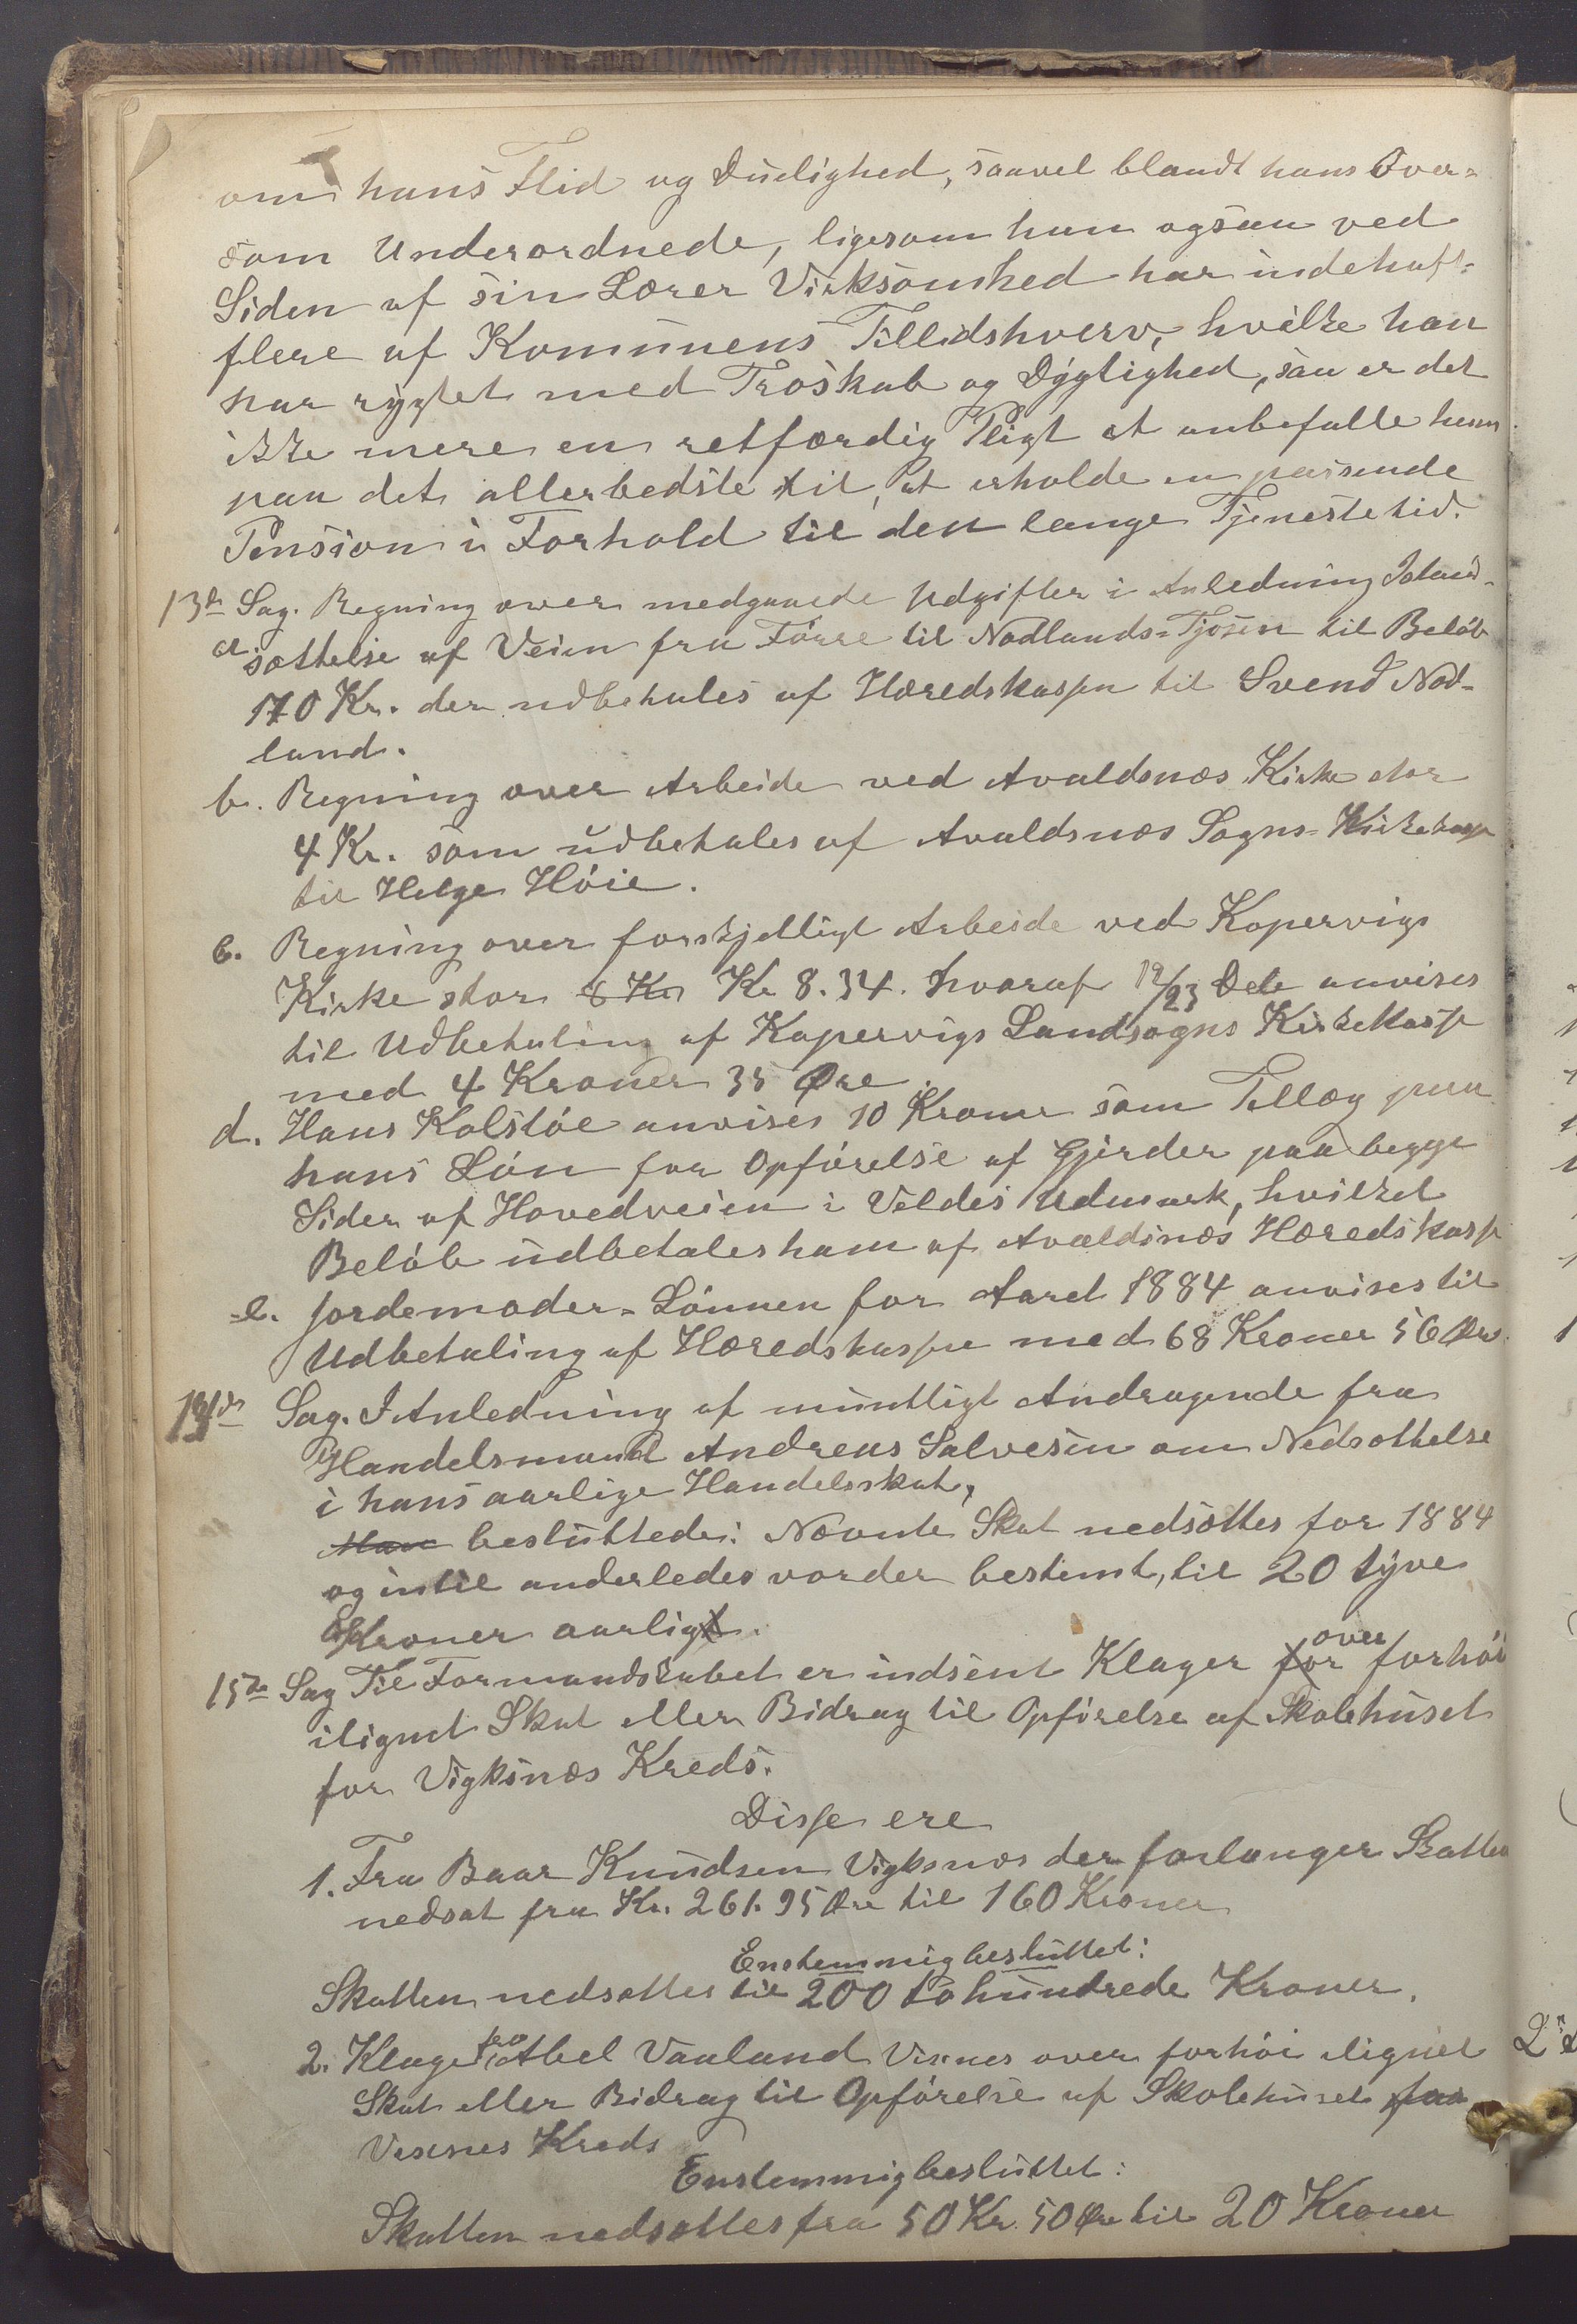 om hans Flid og Duelighed, saavel blandt hans Over-
som Underordnede, ligesom han ogsaa ved
Siden af sin Lærer Virksomhed har indehaft
flere af Komunens Tillidshverv, hvilke han
har rygtet med Troskab og Dygtighed, saa er det
ikke mere en retfærdig Pligt at anbefalle ham
paa det allerbedste til, at erholde en passende
Pension i Forhold til den lange Tjenestetid.
13de Sag. Regning over medgaaede Udgifter i Anledning Istand-
a sættelse af Veien fra Førre til Nodlands-Tjosen til Beløb
170 Kr. der udbetales af Heredskassen til Svend Nod-
land.
b. Regning over Arbeide ved Avaldsnæs Kirke stor
4 Kr. som udbetales af Avaldsnæs Sogns-Kirkekasse
til Helge Høie.
c. Regning over forskjelligt Arbeide ved Kopervigs
Kirke stor 8 Kr Kr 8.34. hvoraf 12/23 Dele anvises
til Udbetaling af Kopervigs Landsogns Kirkekasse
med 4 Kroner 35 Øre.
d. Hans Kolstøe anvises 10 Kroner som Tillæg paa
hans Løn for Opførelse af Gjerder paa begge
Sider af Hovedveien i Veldes Udmark, hvilket
Beløb udbetales ham af Avaldsnæs Heredskasse
e. Jordemoder-Lønnen for Aaret 1884 anvises til
Udbetaling af Heredskassen med 68 Kroner 56 Øre.
14de Sag. I Anledning af mundtligt Andragende fra
Handelsmand Andreas Salvesen om Nedsættelse
i hans aarlige Handelsskat,
Man besluttede: Nævnte Skat nedsættes for 1884
og intil anderledes vorder bestemt, til 20 tyve
Kroner aarligt.
15de Sag Til Formandskabet er indsent Klager for over forhøi
ilignet Skat eller Bidrag til Opførelse af Skolehuset
for Vigksnæs Kreds.
Disse ere
1. Fra Baar Knudsen Vigksnæs der forlanger Skatten
nedsat fra Kr. 261.95 Øre til 160 Kroner
Enstemmig besluttet:
Skatten nedsættes til 200 tohundrede Kroner.
2. Klage fra Abel Vaaland Visnes over forhøi ilignet
Skat eller Bidrag til Opførelse af Skolehuset for
Visnes Kreds
Enstemmig besluttet:
Skatten nedsættes fra 50 Kr. 50 Øre til 20 Kroner